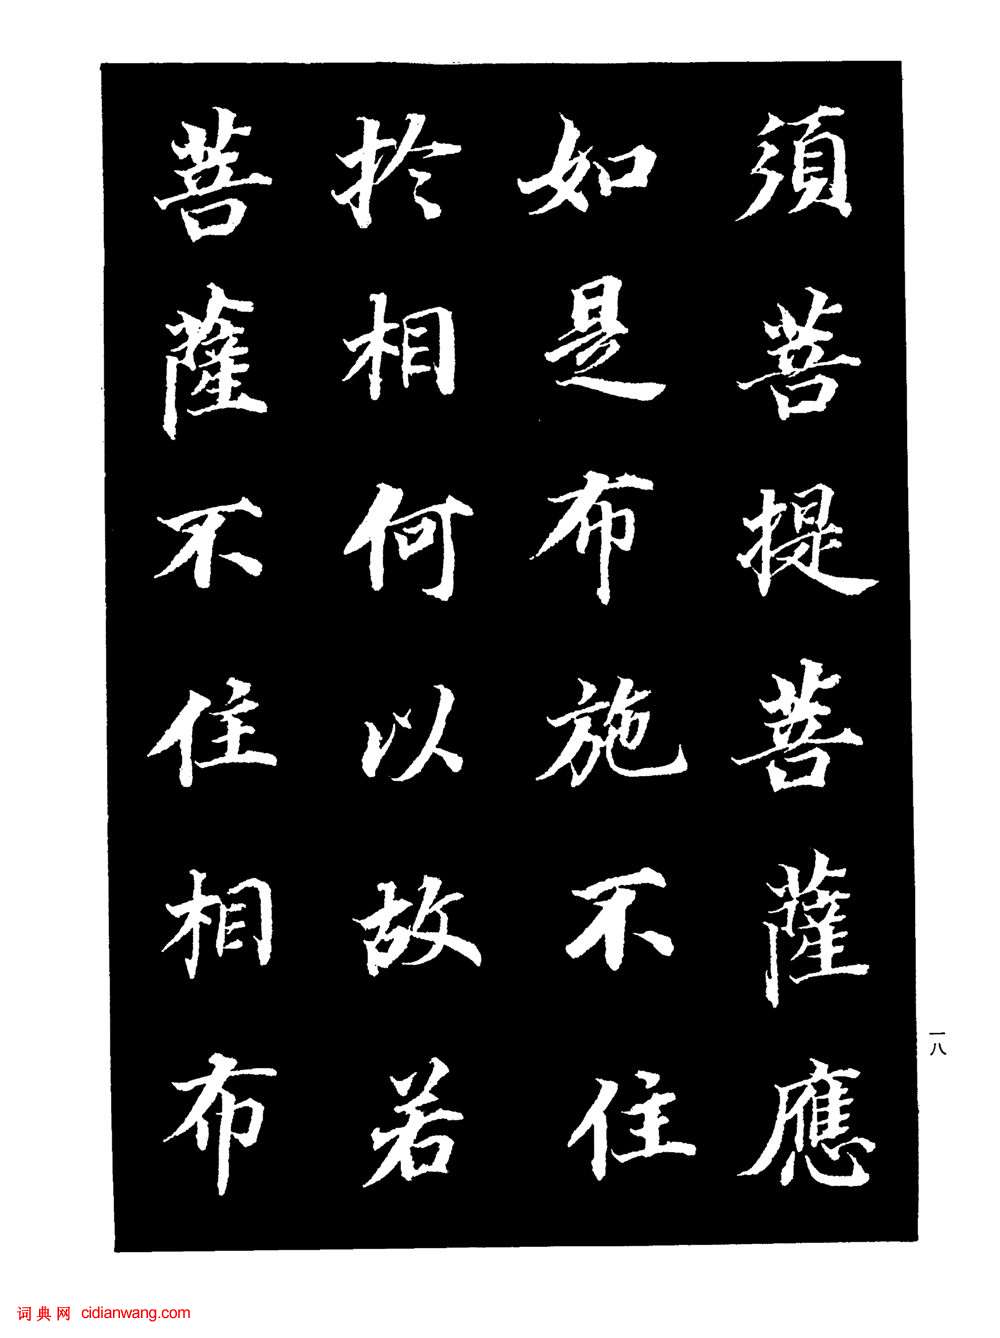 須菩提菩薩應
如是布施不住
於相何以故若
菩薩不住相布
一八
词典网 cidianwang.com